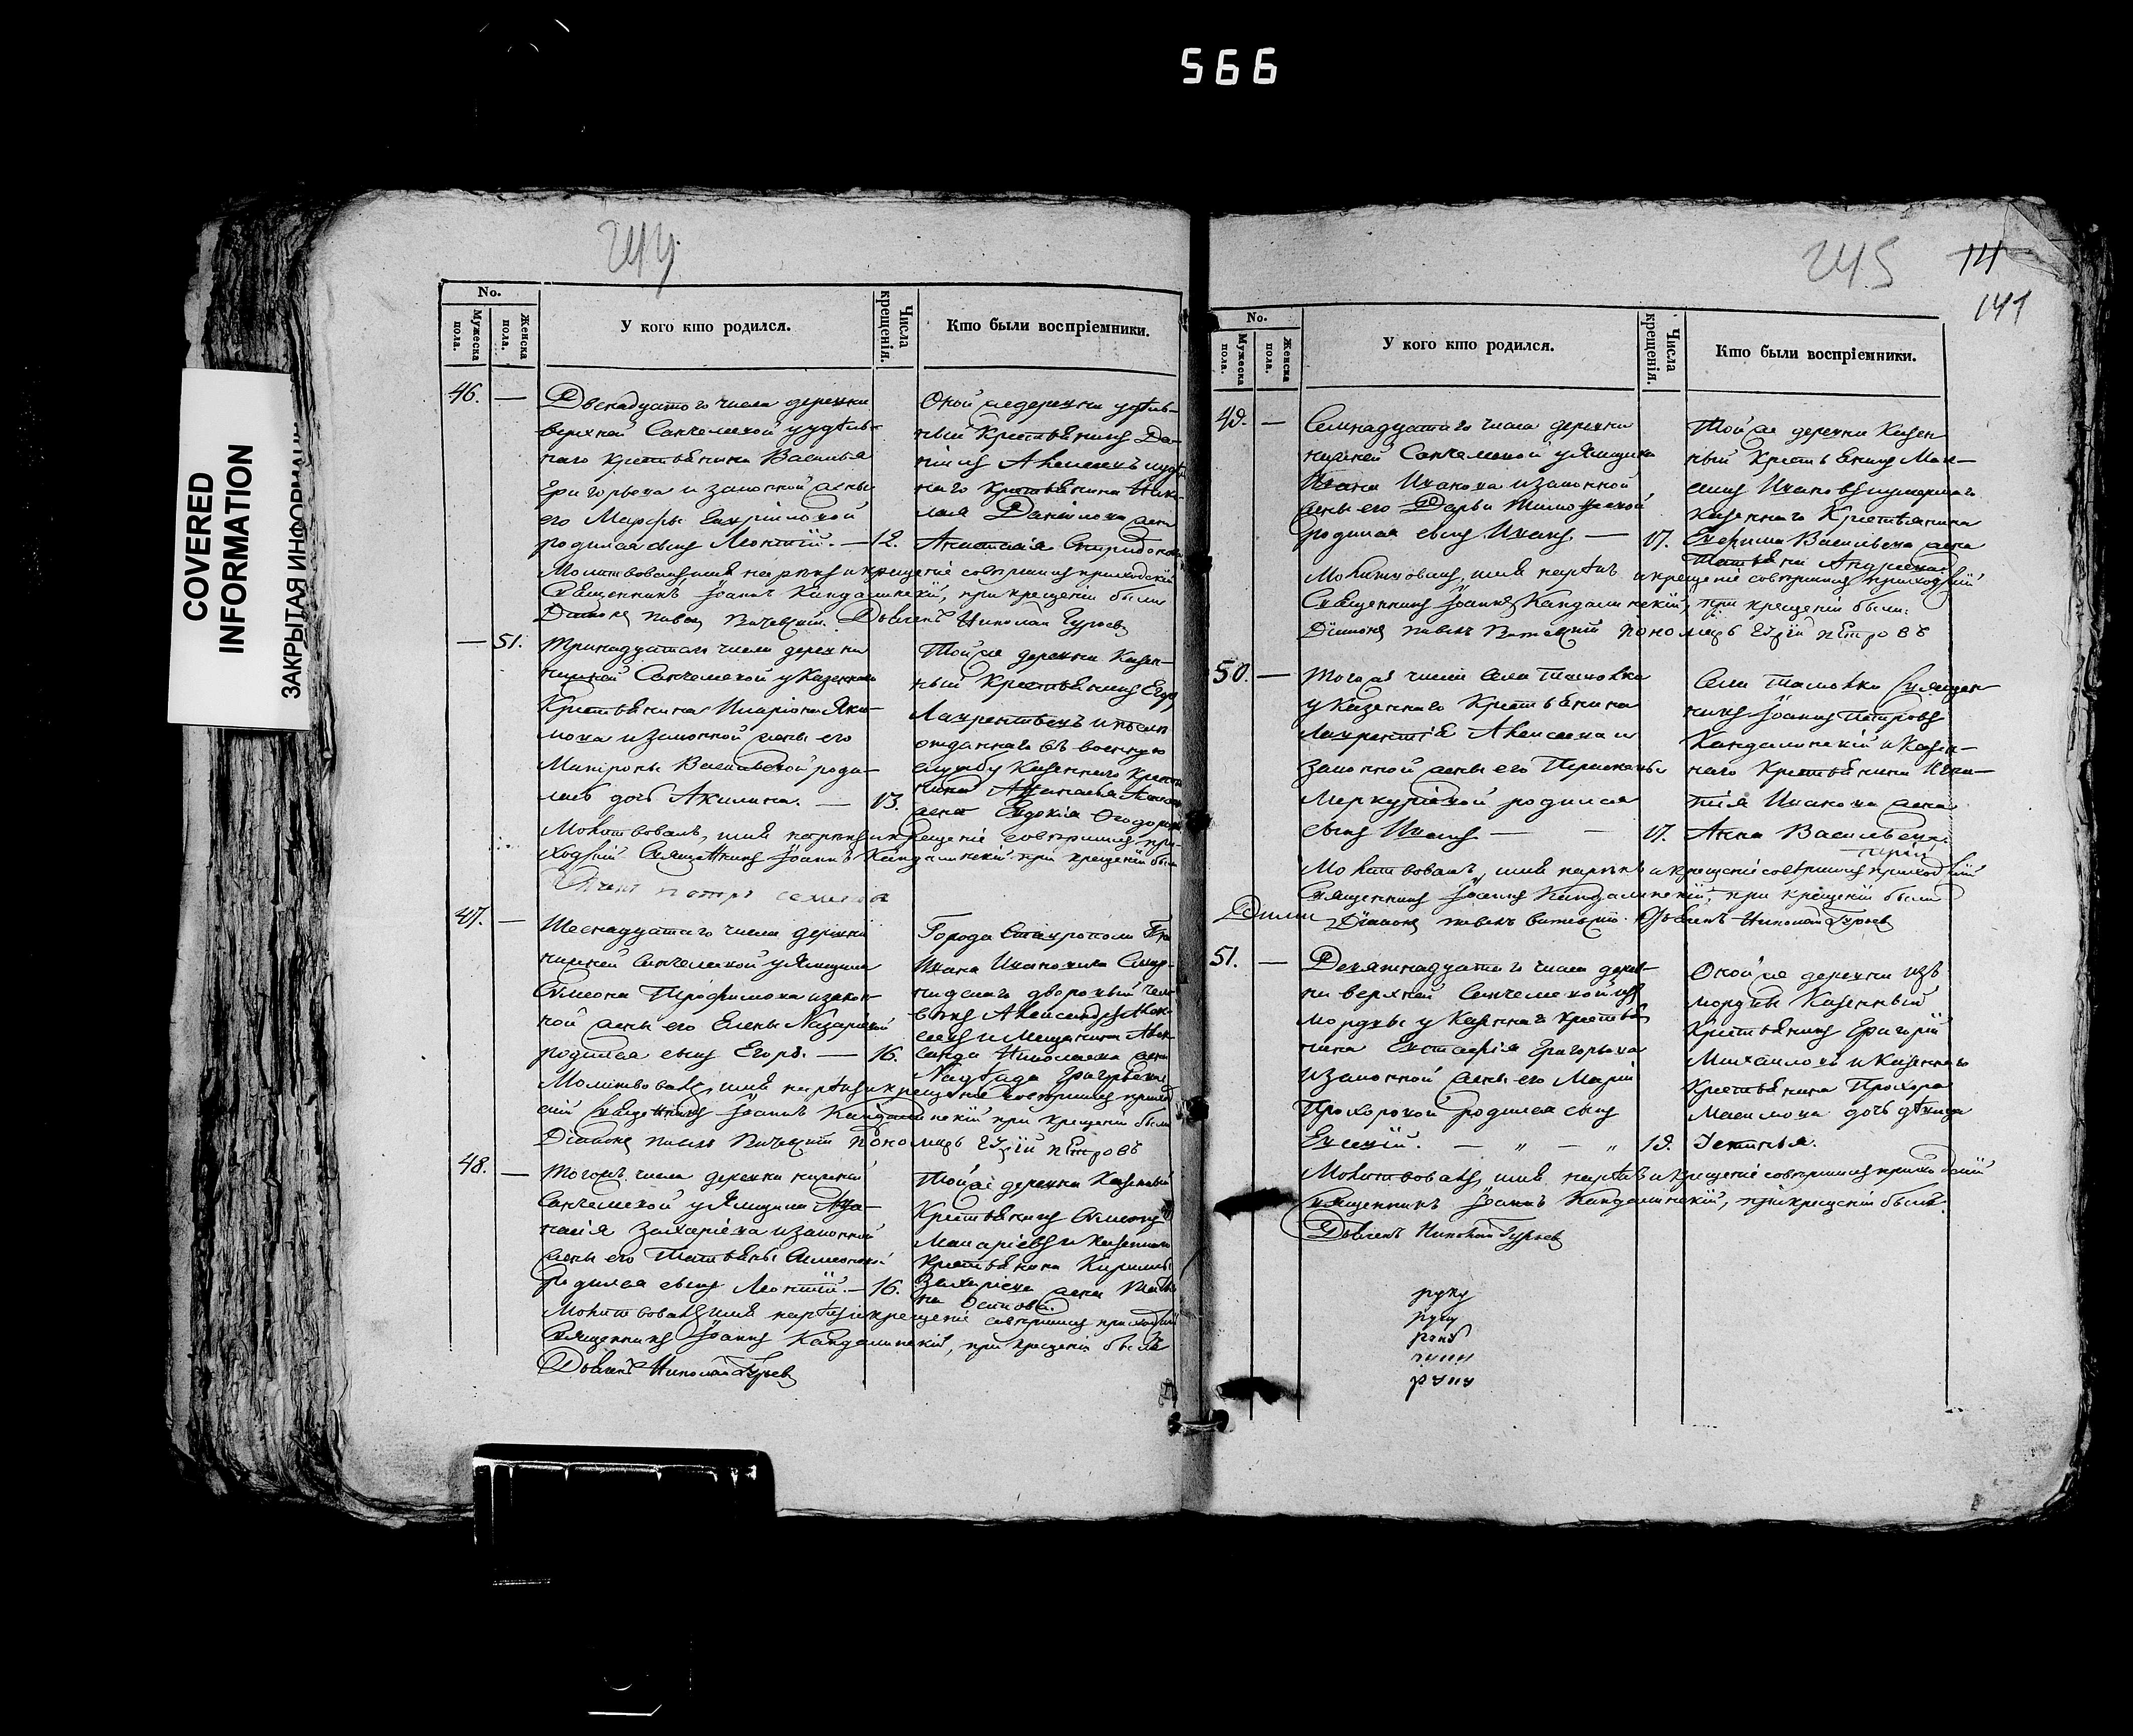 566
COVERED
INFORMATION
ЗАКРЫТАЯ
244
No.
Мужеска пола.
Женска пола.
У кого кто родился.
Числа крещенія.
Кто были воспріемники.
46. —
Двенадцатого числа деревни
верхней Санчелеевой у удѣль-
наго крестьянина Василья
Григорьева и законной жены
его Марфы
родился сынъ Леонтій. — 12.
деревни удѣль-
ный Крестьянинъ Да-
нилъ
наго крестьянина
Данилова жена
Анастасія Спиридонова
Молитвовалъ, имя нарекъ и крещеніе совершилъ приходскій
Священникъ Іоаннъ Кандалинскій, при крещеніи были
Діаконъ Павелъ Дьячекъ Николай Гурьевъ
— 51.
Тринадцатаго числа деревни
нижней Санчелеевой у Казеннаго
Крестьянина Иларіона Яки-
мова и законной жены его
Матроны Васильевой роди-
лась дочь Акилина. — 13.
Той же деревни Казен-
ный Крестьянинъ Егоръ
Лаврентьевъ и
отданнаго въ военную
службу Казеннаго Крестья
нина
жена Евдокія
Молитвовалъ, имя нарекъ и крещеніе совершилъ при-
ходскій Священникъ Іоаннъ Кандалинскій при крещеніи былъ
Петръ Семеновъ
47. —
Шеснадцатаго числа деревни
нижней Санчелеевой у Ямщика
Симеона Трофимова и закон-
ной жены его Елены Назаріевой
родился сынъ Егоръ. — 16.
Города Ставрополя
Ивана Ивановича Смир-
дворовый чело
вѣкъ Александръ Алек-
сеевъ и Мещанина Алек-
сандра Николаева жена
Надѣжда Григорьева
Молитвовалъ, имя нарекъ и крещеніе совершилъ приход
скій Священникъ Іоаннъ Кандалинскій при крещеніи были
Діаконъ Павелъ Пономарь Петровъ
48. —
Тогожъ числа деревни нижней
Санчелеевой у Ямщика
Захаріева и законной
жены его Татьяны Симеоновой
родился сынъ Леонтій. — 16.
Той же деревни Казенный
Крестьянинъ Симеонъ
Макаріевъ и Казеннаго
Крестьянина Кирилы
Захаріева жена
Осипова.
Молитвовалъ, имя нарекъ и крещеніе совершилъ приходскій
Священникъ Іоаннъ Кандалинскій, при крещеніи былъ
Дьячекъ Николай Гурьевъ
245
141
No.
Мужеска пола.
Женска пола.
У кого кто родился.
Числа крещенія.
Кто были воспріемники.
49. —
Семнадцатаго числа деревни
нижней Санчелеевой у Ямщика
Ивана Иванова и законной
жены его Дарьи Тимофеевой
родился сынъ Иванъ. — 17.
Той же деревни Казен
ный Крестьянинъ Мак-
симъ Ивановъ и умершаго
Казеннаго Крестьянина
Васильева жена
Андреева.
Молитвовалъ, имя нарекъ и крещеніе совершилъ приходскій
Священникъ Іоаннъ Кандалинскій, при крещеніи были:
Діаконъ Павелъ Пономарь Петровъ
50. —
Тогожъ числа села Ташовки
у Казеннаго Крестьянина
Лаврентія Алексеева и
законной жены его
Меркуріевой родился
сынъ Иванъ — — 17.
Села Ташовки Священ
никъ Іоаннъ Петровъ
Кандалинскій и Казен-
наго Крестьянина Игна-
тія Иванова жена
Анна Васильева
Молитвовалъ, имя нарекъ и крещеніе совершилъ приходскій
Священникъ Іоаннъ Кандалинскій, при крещеніи были
Діаконъ Павелъ Дьячекъ Николай Гурьевъ
51. —
Девятнадцатаго числа дерев-
ни верхней Санчелеевой изъ
мордвы у Казеннаго крестья
нина Евстафія Григорьева
и законной жены его Маріи
Прохоровой родился сынъ
Евсевій. — „ — „ 19.
Оной же деревни изъ
мордвы Казенный
Крестьянинъ Григорій
Михайловъ и Казеннаго
Крестьянина Прохора
Максимова дочь дѣвица
Устинья.
Молитвовалъ, имя нарекъ и крещеніе совершилъ приходскій
Священникъ Іоаннъ Кандалинскій, при крещеніи былъ:
Дьячекъ Николай Гурьевъ
руку
руку